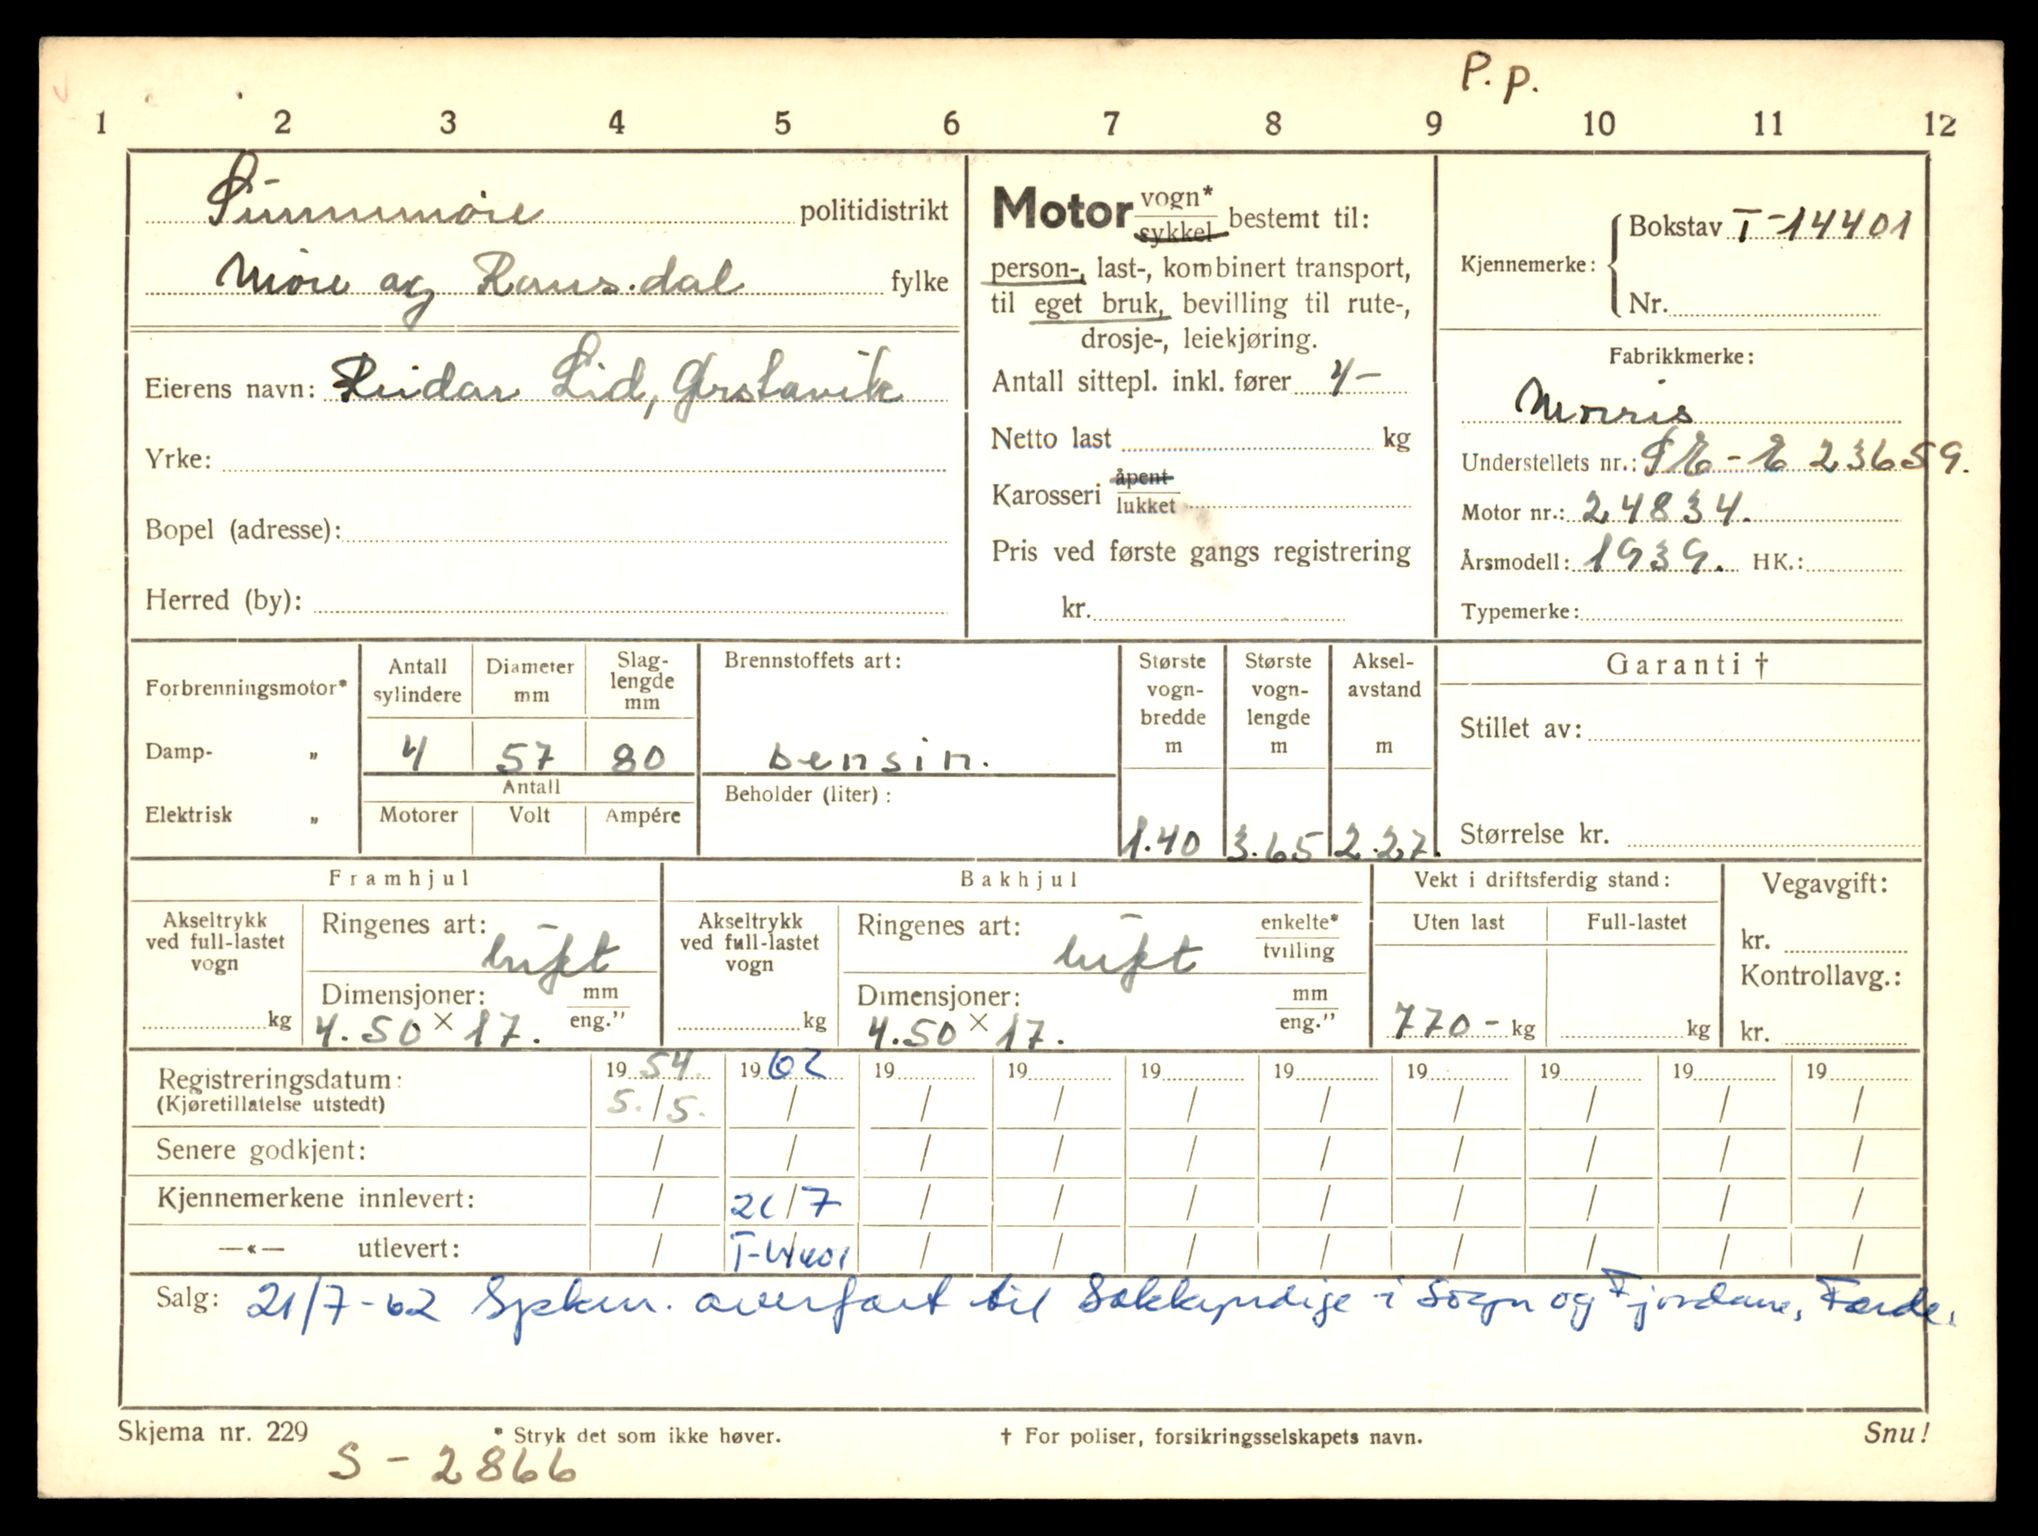 P.p.
1 2 3 4 5 6 7 8 9 10 11 12
Sunnmøre politidistrikt
Møre og Romsdal fylke
Eierens navn: Reidar Lid, Ørstavik
Yrke:
Bopel (adresse):
Herred (by):
Motor vogn* / sykkel bestemt til:
person-, last-, kombinert transport,
til eget bruk, bevilling til rute-,
drosje-, leiekjøring.
Antall sittepl. inkl. fører 4-
Netto last kg
Karosseri åpent / lukket
Pris ved første gangs registrering
kr.
Kjennemerke: Bokstav T-14401
Nr.
Fabrikkmerke:
Morris
Understellets nr.: SE-E 23659.
Motor nr.: 24834.
Årsmodell: 1939. HK.:
Typemerke:
Forbrenningsmotor*
Damp- „
Elektrisk „
Antall sylindere Diameter mm Slag-lengde mm
4 57 80
Antall
Motorer Volt Ampére
Brennstoffets art:
bensin.
Beholder (liter):
Største vogn-bredde m Største vogn-lengde m Aksel-avstand m
1.40 3.65 2.27.
Garanti †
Stillet av:
Størrelse kr.
Framhjul
Akseltrykk ved full-lastet vogn
kg
Ringenes art: luft
Dimensjoner: mm / eng."
4.50 × 17.
Bakhjul
Akseltrykk ved full-lastet vogn
kg
Ringenes art: luft enkelte* / tvilling
Dimensjoner: mm / eng."
4.50 × 17.
Vekt i driftsferdig stand:
Uten last Full-lastet
770- kg kg
Vegavgift:
kr.
Kontrollavg.:
kr.
Registreringsdatum: 19 54. 19 62 19 19 19 19 19 19 19 19
(Kjøretillatelse utstedt) 5./5. / / / / / / / / /
Senere godkjent: / / / / / / / / / /
Kjennemerkene innlevert: / 21/7 / / / / / / / /
—«— utlevert: / T-14401 / / / / / / / /
Salg: 21/7-62 Spkm. overført til Sakkyndige i Sogn og Fjordane, Førde.
Skjema nr. 229 * Stryk det som ikke høver. † For poliser, forsikringsselskapets navn. Snu!
S-2866